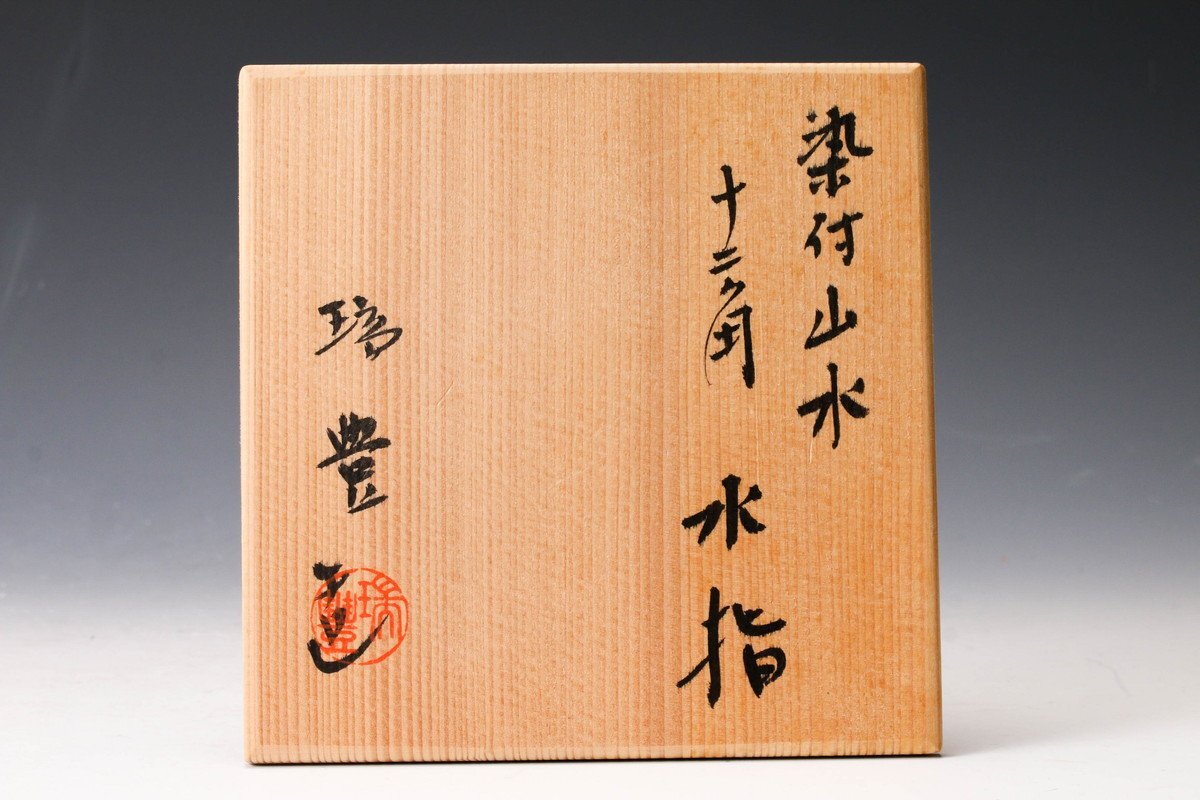 染付山水
十二ヶ角
水指
瑞豊造
瑞豐